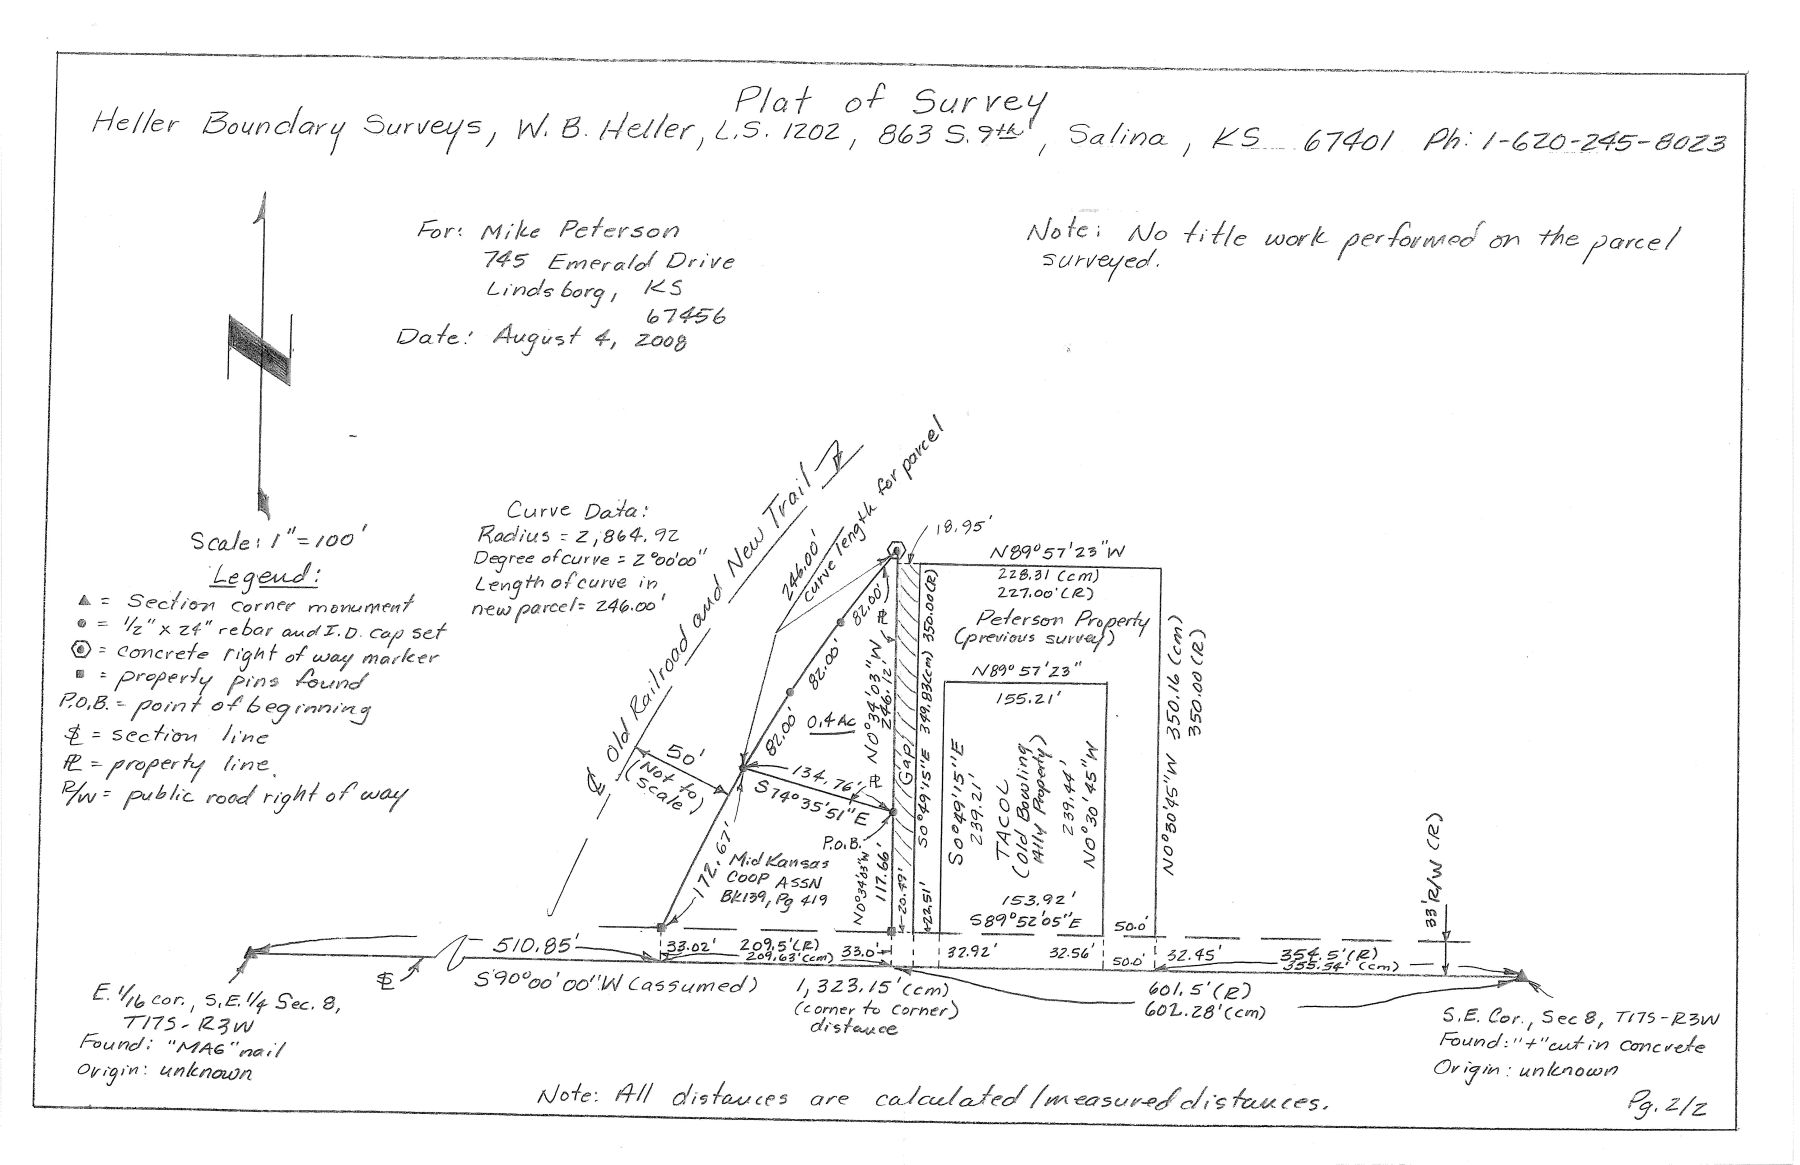 Plat of Survey
Heller Boundary Surveys, W. B. Heller, L.S. 1202, 863 S. 9th, Salina, KS 67401 Ph: 1-620-245-8023
For: Mike Peterson
745 Emerald Drive
Lindsborg, KS
67456
Date: August 4, 2008
Note: No title work performed on the parcel
surveyed.
Scale: 1"=100'
Legend:
▲ = Section corner monument
● = 1/2" x 24" rebar and I.D. cap set
= concrete right of way marker
■ = property pins found
P.O.B. = point of beginning
= section line
PL = property line.
R/W = public road right of way
Curve Data:
Radius = 2,864.92
Degree of curve = 2°00'00"
Length of curve in
new parcel = 246.00'
Old Railroad and New Trail
246.00'
curve length for parcel
18.95'
N89°57'23"W
228.31 (cm)
227.00' (R)
Peterson Property
(previous survey)
N89°57'23"
155.21'
82.00'
82.00'
82.00'
0.4 Ac
N0°34'03"W
246.12'
PL
PL
(Gap)
S0°49'15"E 349.83(cm) 350.00(R)
S0°49'15"E
239.21'
TACOL
(Old Bowling
Ally Property)
239.44'
N0°30'45"W
N0°30'45"W 350.16 (cm)
350.00 (R)
50'
(Not to
Scale)
134.76'
S74°35'51"E
P.O.B.
172.67'
Mid Kansas
COOP ASSN
BK139, Pg 419
N0°34'03"W
117.66'
20.49'
22.51'
153.92'
S89°52'05"E
50.0'
33' R/W (R)
510.85'
33.02'
209.5' (R)
209.63' (cm)
33.0'
32.92'
32.56'
50.0'
32.45'
354.5' (R)
355.54' (cm)
S90°00'00"W (assumed)
1,323.15' (cm)
(corner to corner)
distance
601.5' (R)
602.28' (cm)
E. 1/16 cor., S.E. 1/4 Sec. 8,
T17S-R3W
Found: "MAG" nail
Origin: unknown
S.E. Cor., Sec 8, T17S-R3W
Found: "+" cut in concrete
Origin: unknown
Note: All distances are calculated/measured distances.
Pg. 2/2